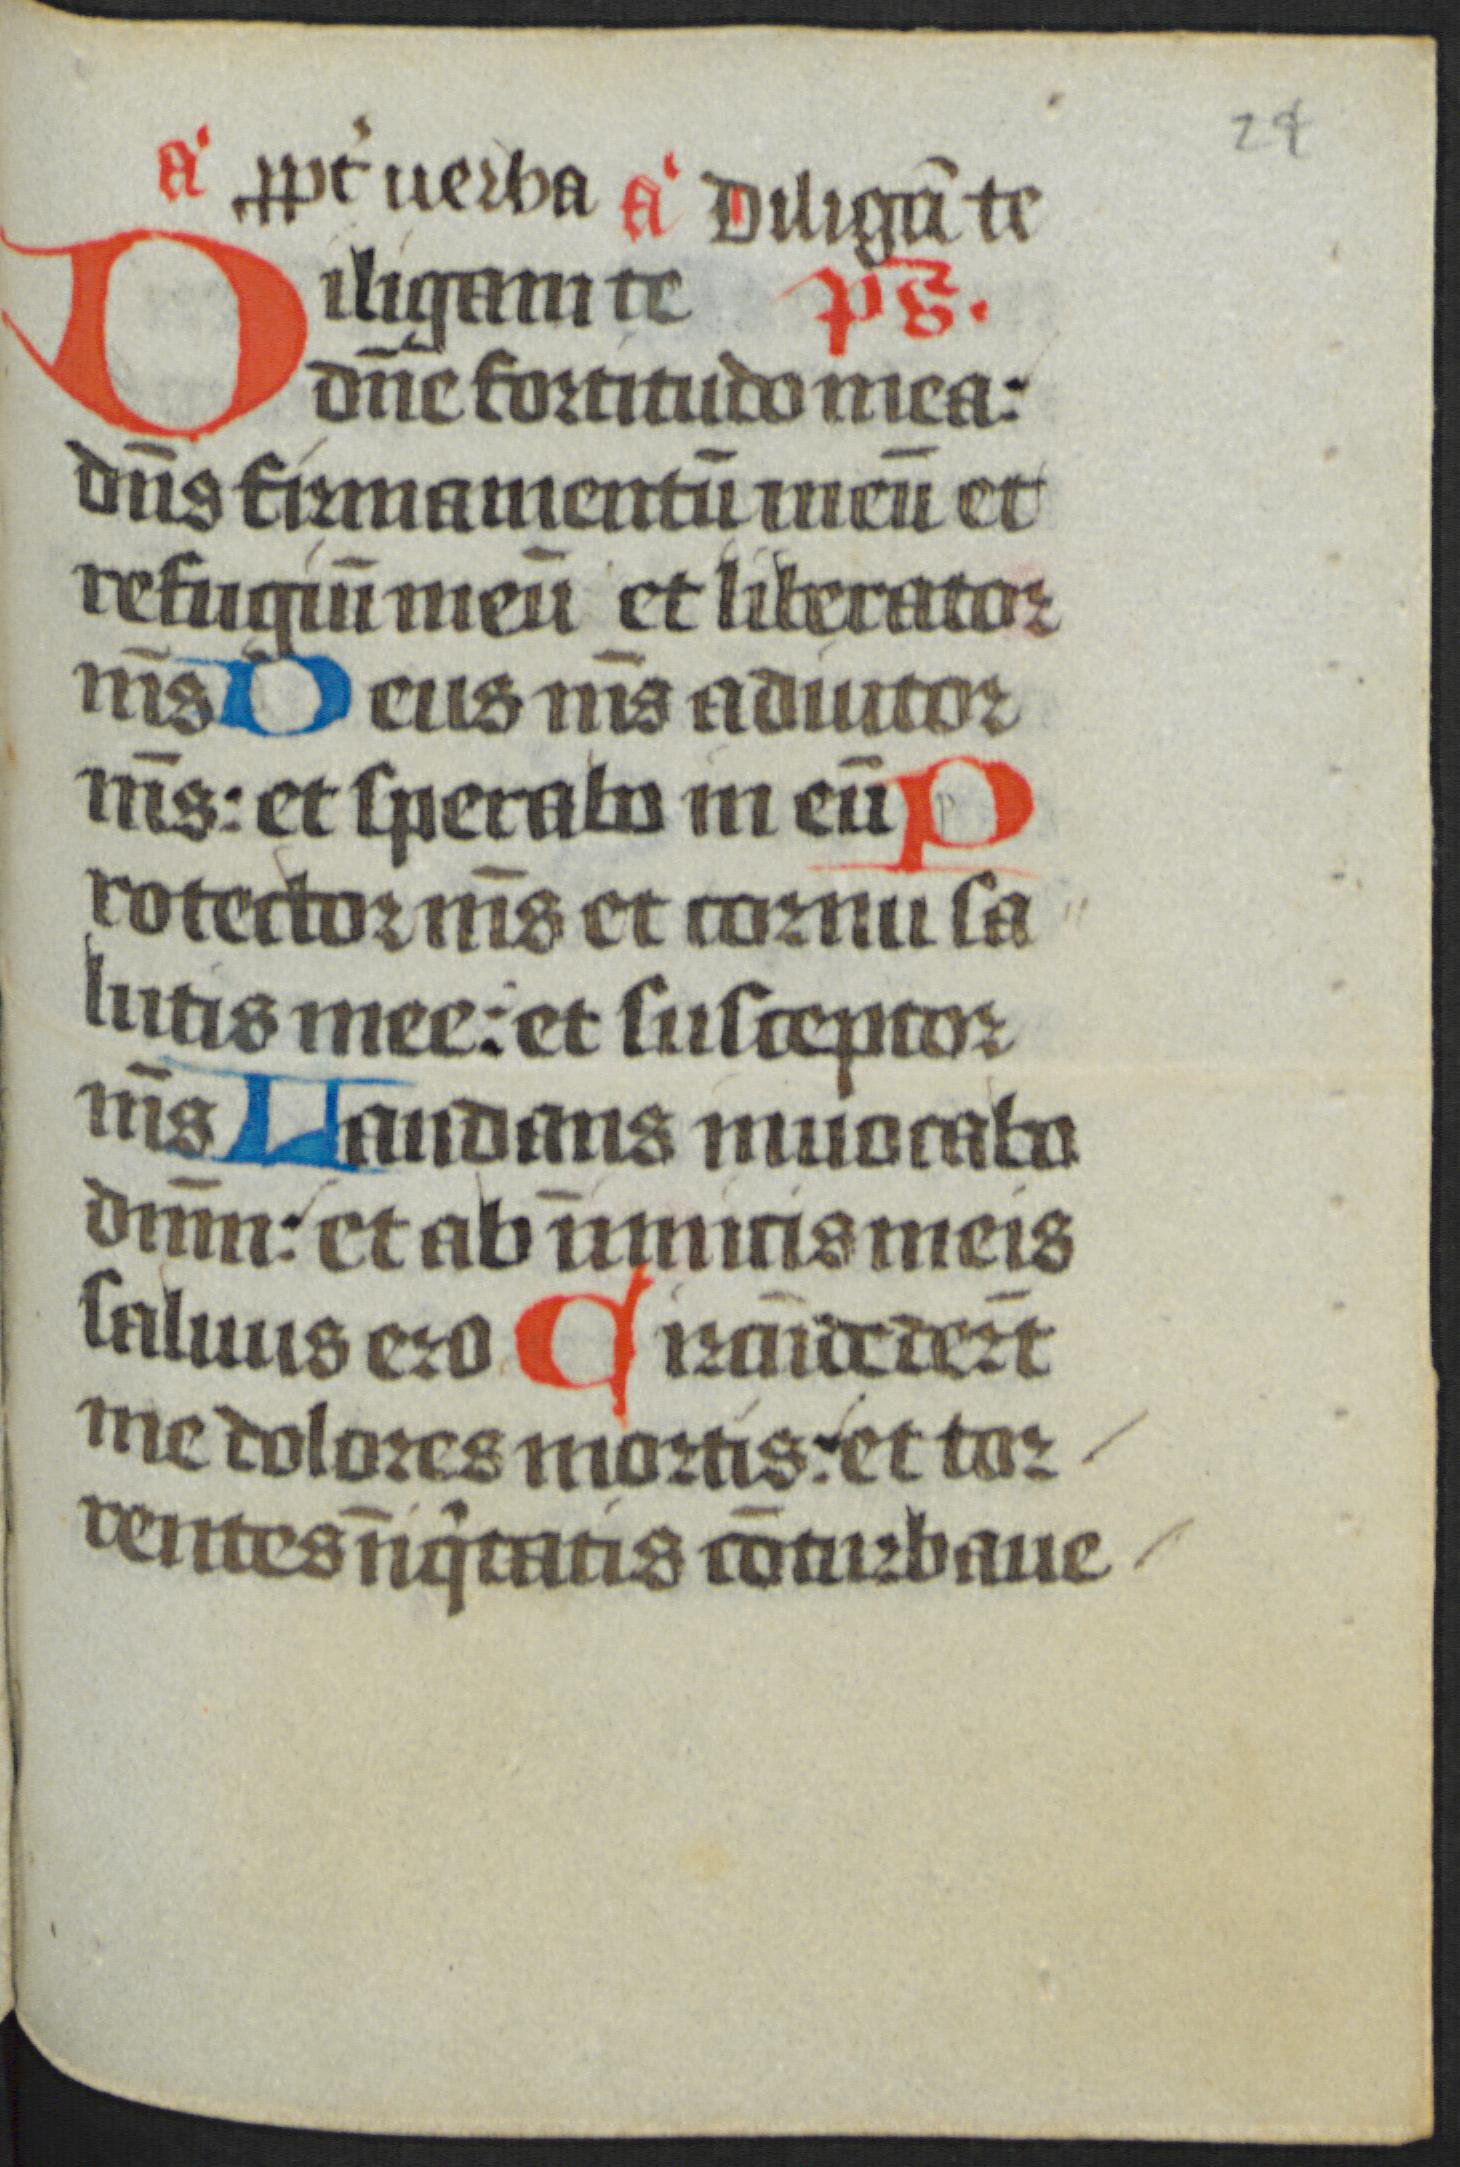 24
a' ꝓpt' uerba a' Diligā te
Diligam te ps̄.
dn̄e fortitudo mea:
dn̄s firmamentū meū et
refugiū meū et liberator
m̄s Deus m̄s adiutor
m̄s: et sperabo in eū P
rotector m̄s et cornu sa
lutis mee: et susceptor
m̄s Laudans inuocabo
dn̄m: et ab inimicis meis
saluus ero Circūdedert̄
me dolores mortis: et tor
rentes iniqͥtatis cōturbaue